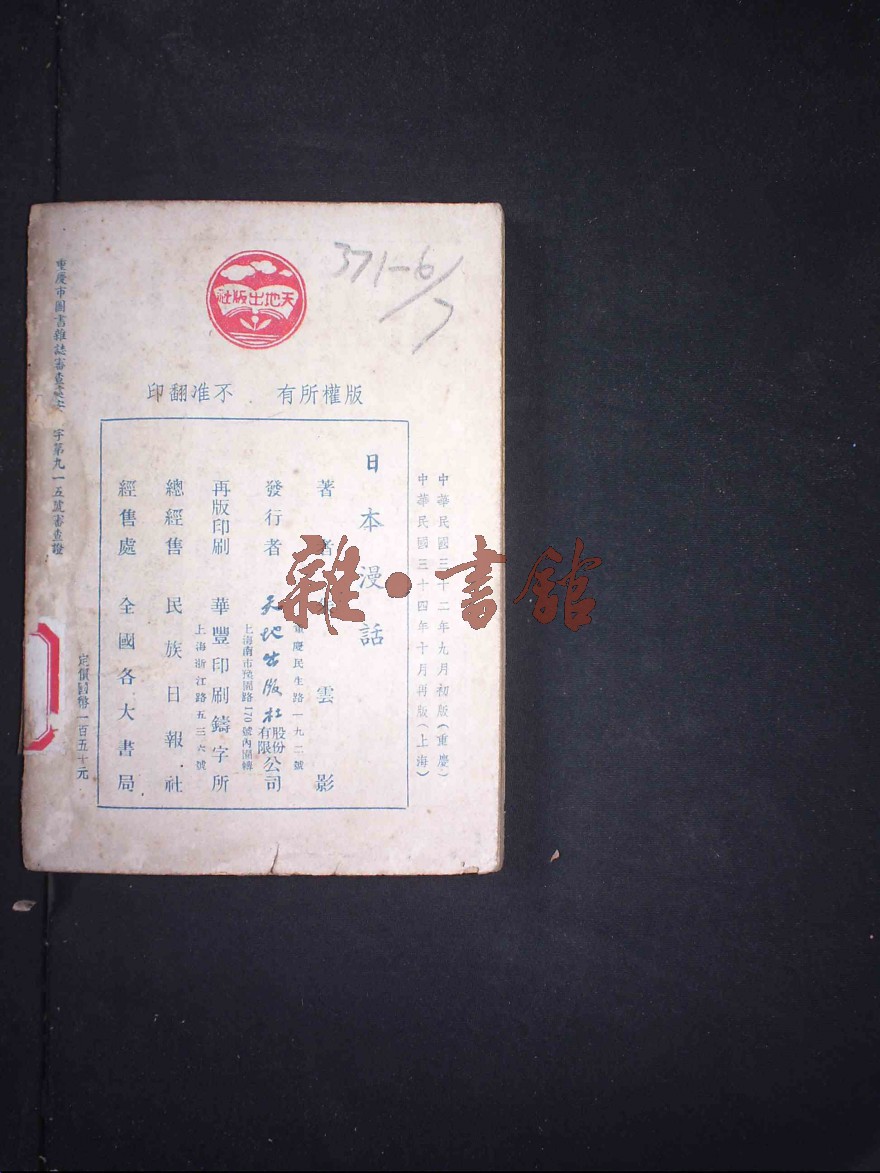 371-6/7
天地出版社
版權所有 不准翻印
中華民國三十二年九月初版(重慶)
中華民國三十四年十月再版(上海)
日本漫話
著者 雲影
重慶民生路一九二號
發行者 天地出版社股份有限公司
上海南市 路170號內
再版印刷 華豐印刷鑄字所
上海浙江路五三六號
總經售 民族日報社
經售處 全國各大書局
定價國幣一百五十元
重慶市圖書雜誌審查 字第九一五號審查證
雜·書館